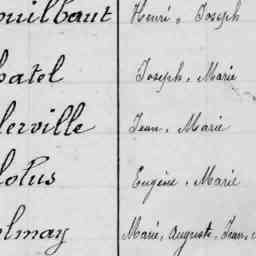 ouilbaut Henri, Joseph
hatel Joseph, Marie
lerville Jean, Marie
lolus Eugène, Marie
olmay Marie, Auguste, Jean,